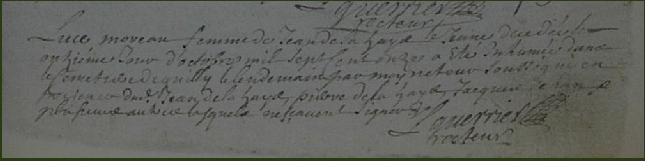 Lguerrier
recteur
Luce moreau femme de Jean de la haye le Jeune decedée le
onzième Jour d'octobre mil sept cent onze a eté Inhumée dans
le cimetiere de quilly le lendemain par moy recteur soussigné en
presence dud. Jean de la haye, pierre de la haye, Jacques
plusieurs autres lesquels ne scavent signer
Lguerrier
recteur